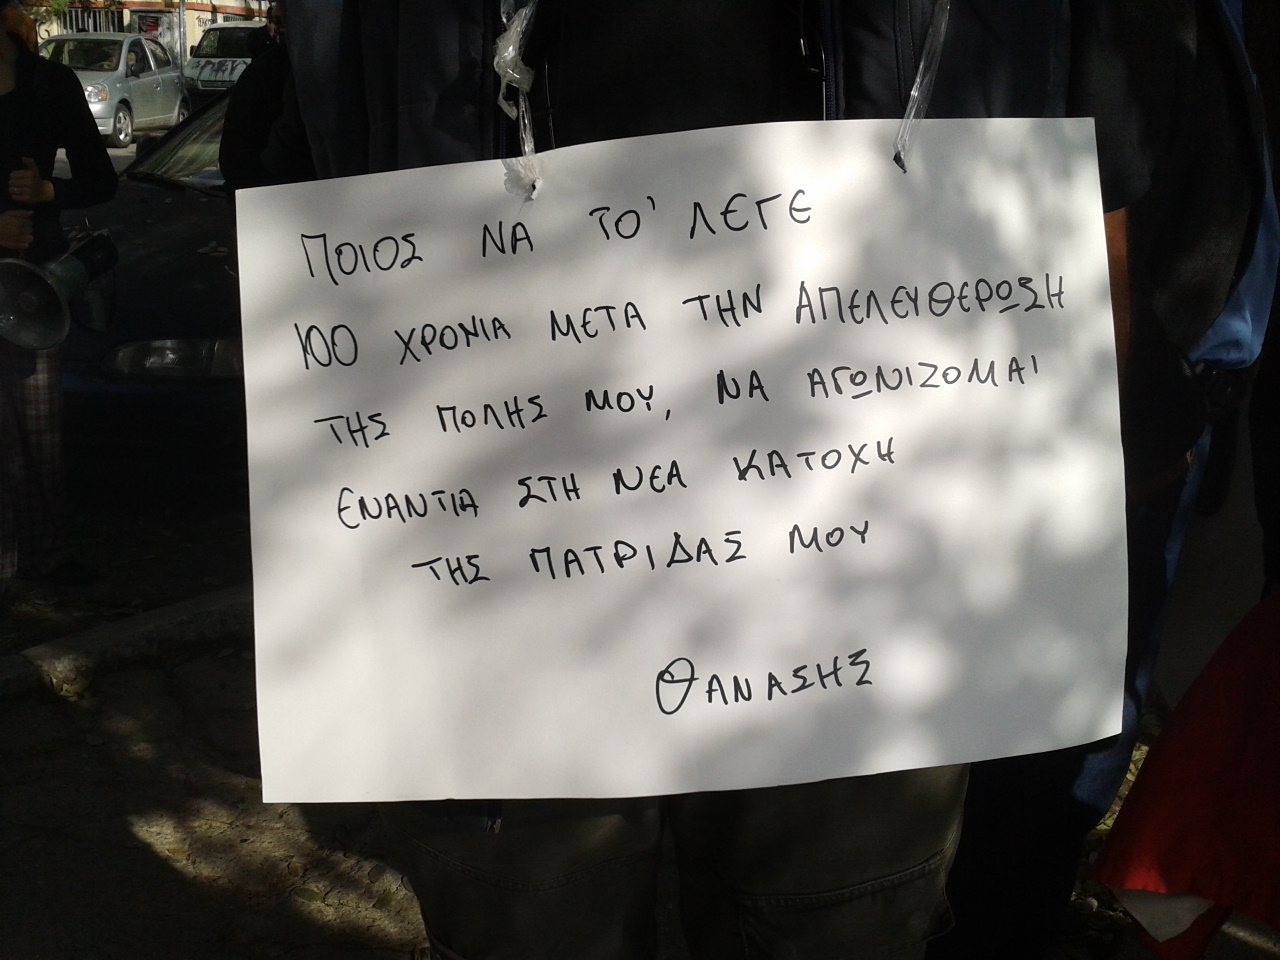 ΠΟΙΟΣ ΝΑ ΤΟ' ΛΕΓΕ
100 ΧΡΟΝΙΑ ΜΕΤΑ ΤΗΝ ΑΠΕΛΕΥΘΕΡΩΣΗ
ΤΗΣ ΠΟΛΗΣ ΜΟΥ, ΝΑ ΑΓΩΝΙΖΟΜΑΙ
ΕΝΑΝΤΙΑ ΣΤΗ ΝΕΑ ΚΑΤΟΧΗ
ΤΗΣ ΠΑΤΡΙΔΑΣ ΜΟΥ
ΘΑΝΑΣΗΣ